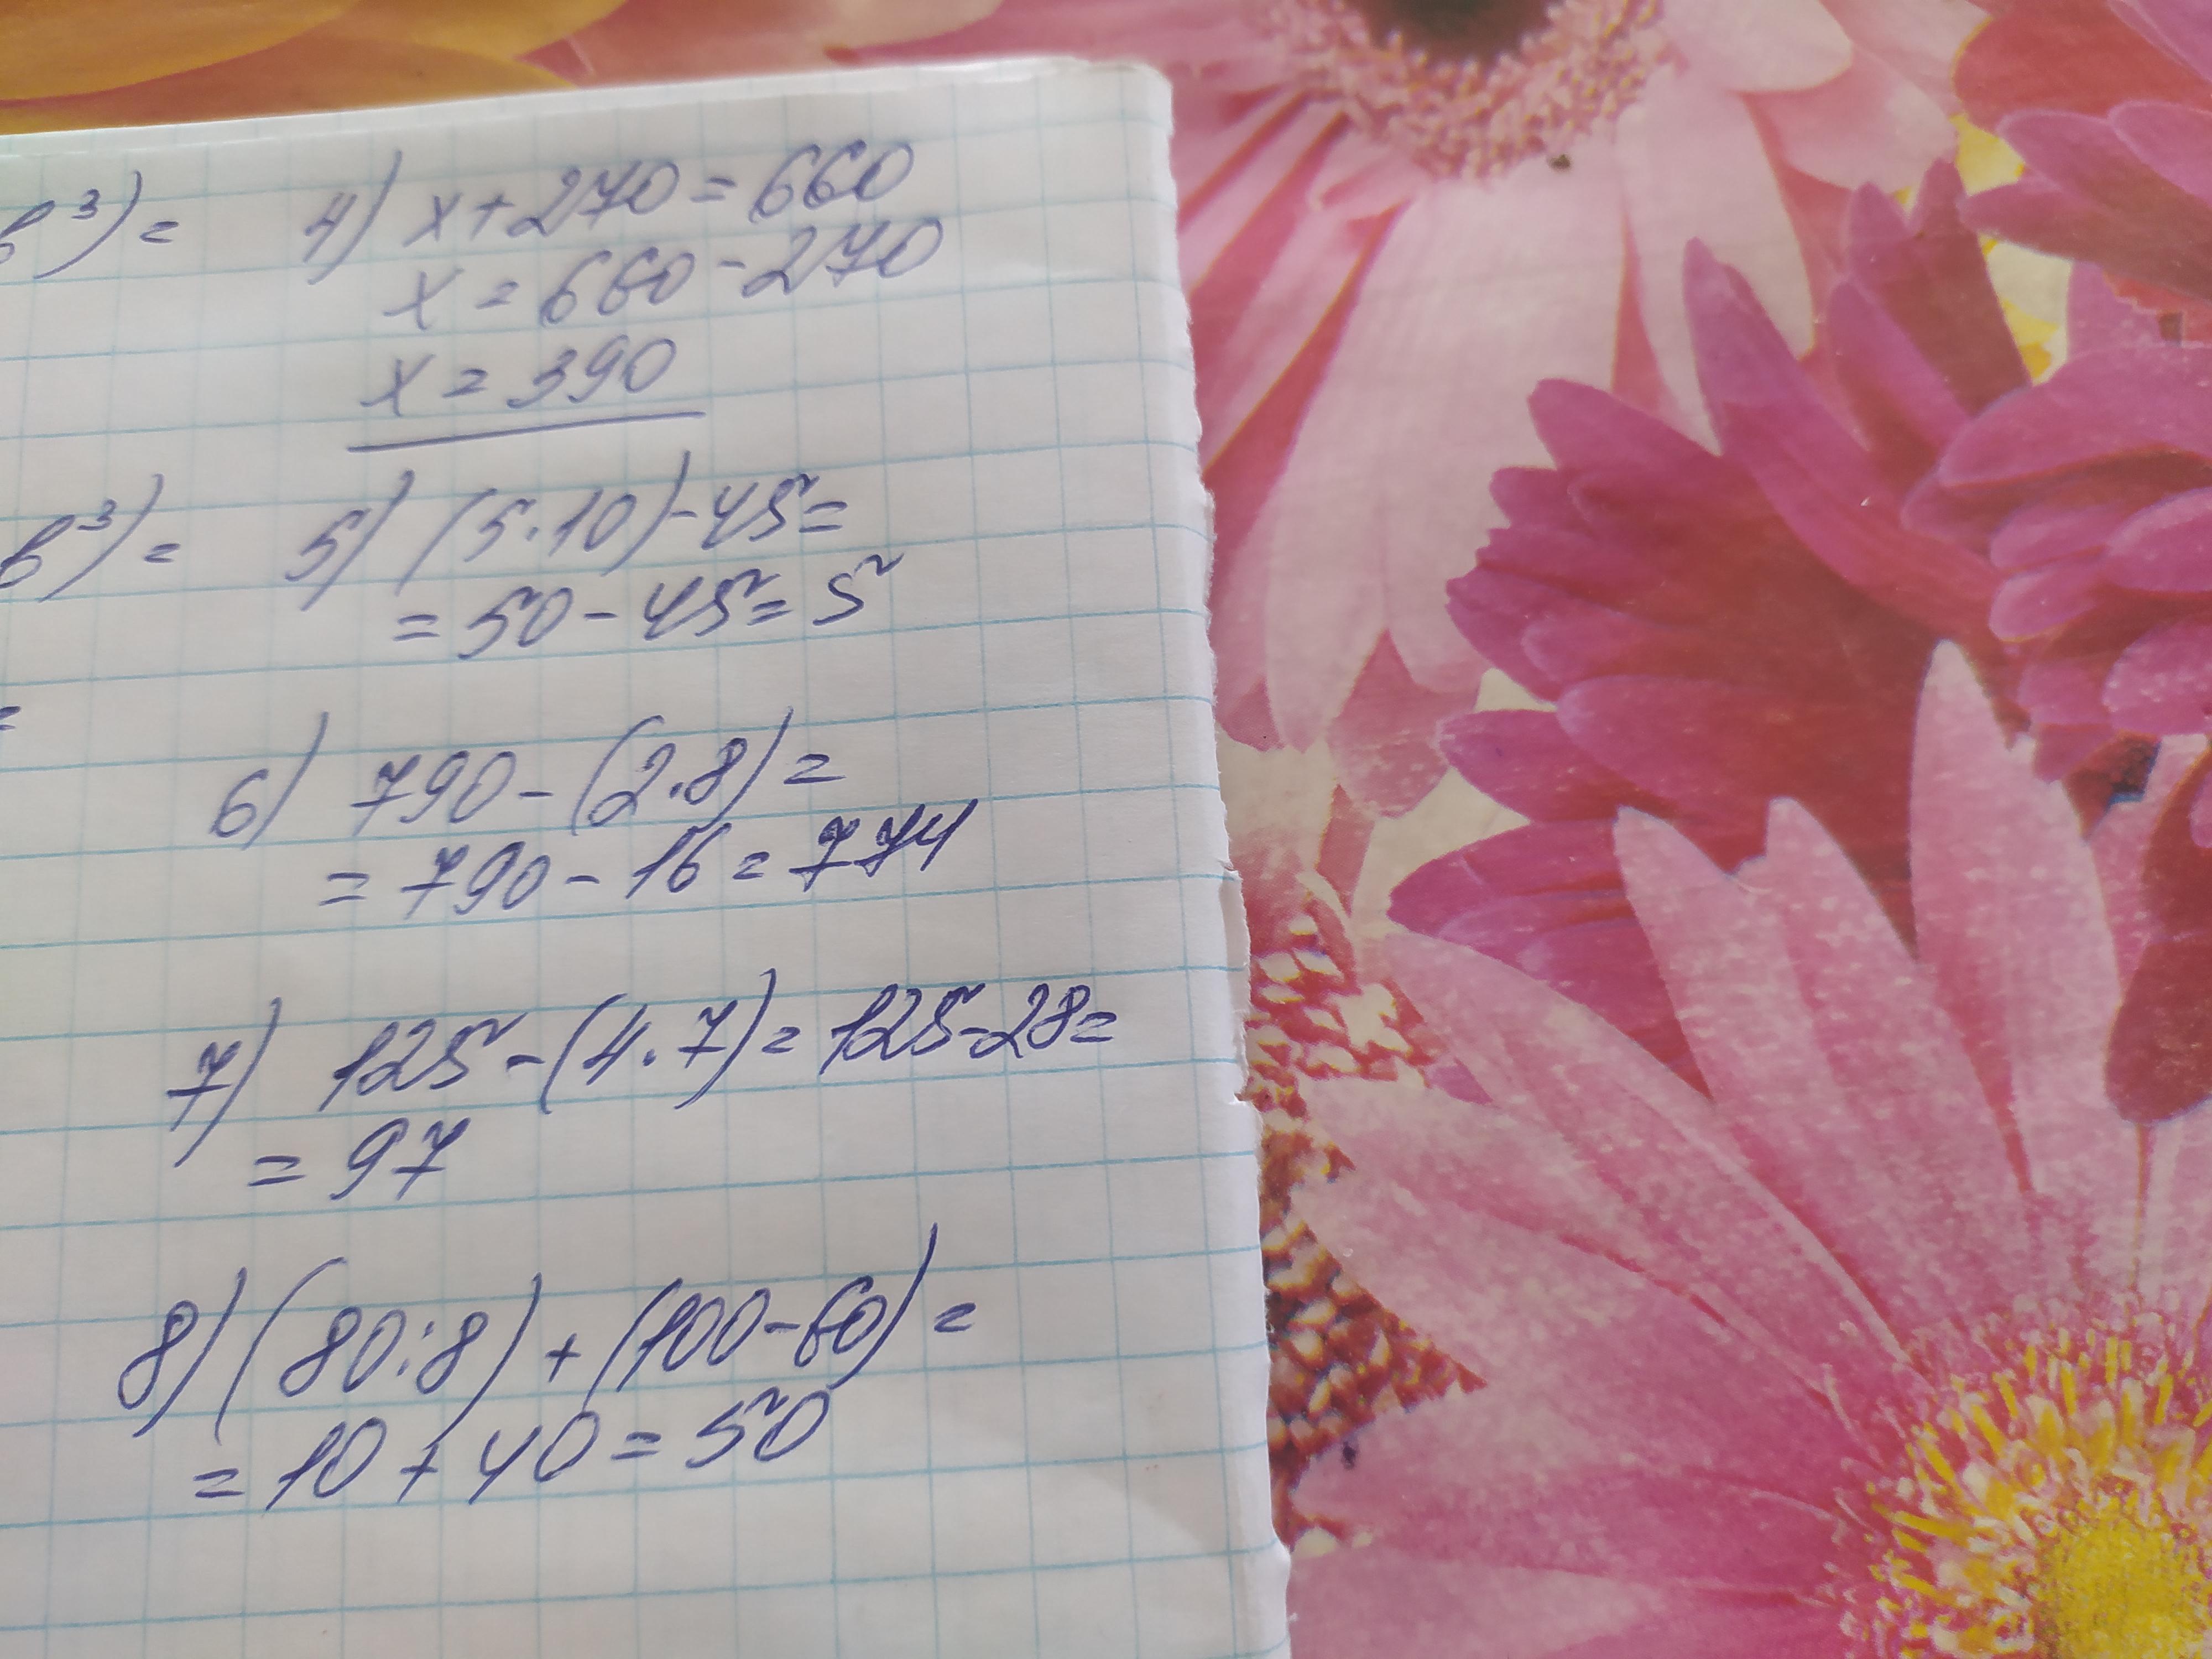 b³)= 4) x+270=660
x=660-270
x=390
b³)= 5) (5·10)-45=
=50-45=5
=
6) 790-(2·8)=
=790-16=774
7) 125-(4·7)=125-28=
=97
8) (80:8)+(100-60)=
=10+40=50